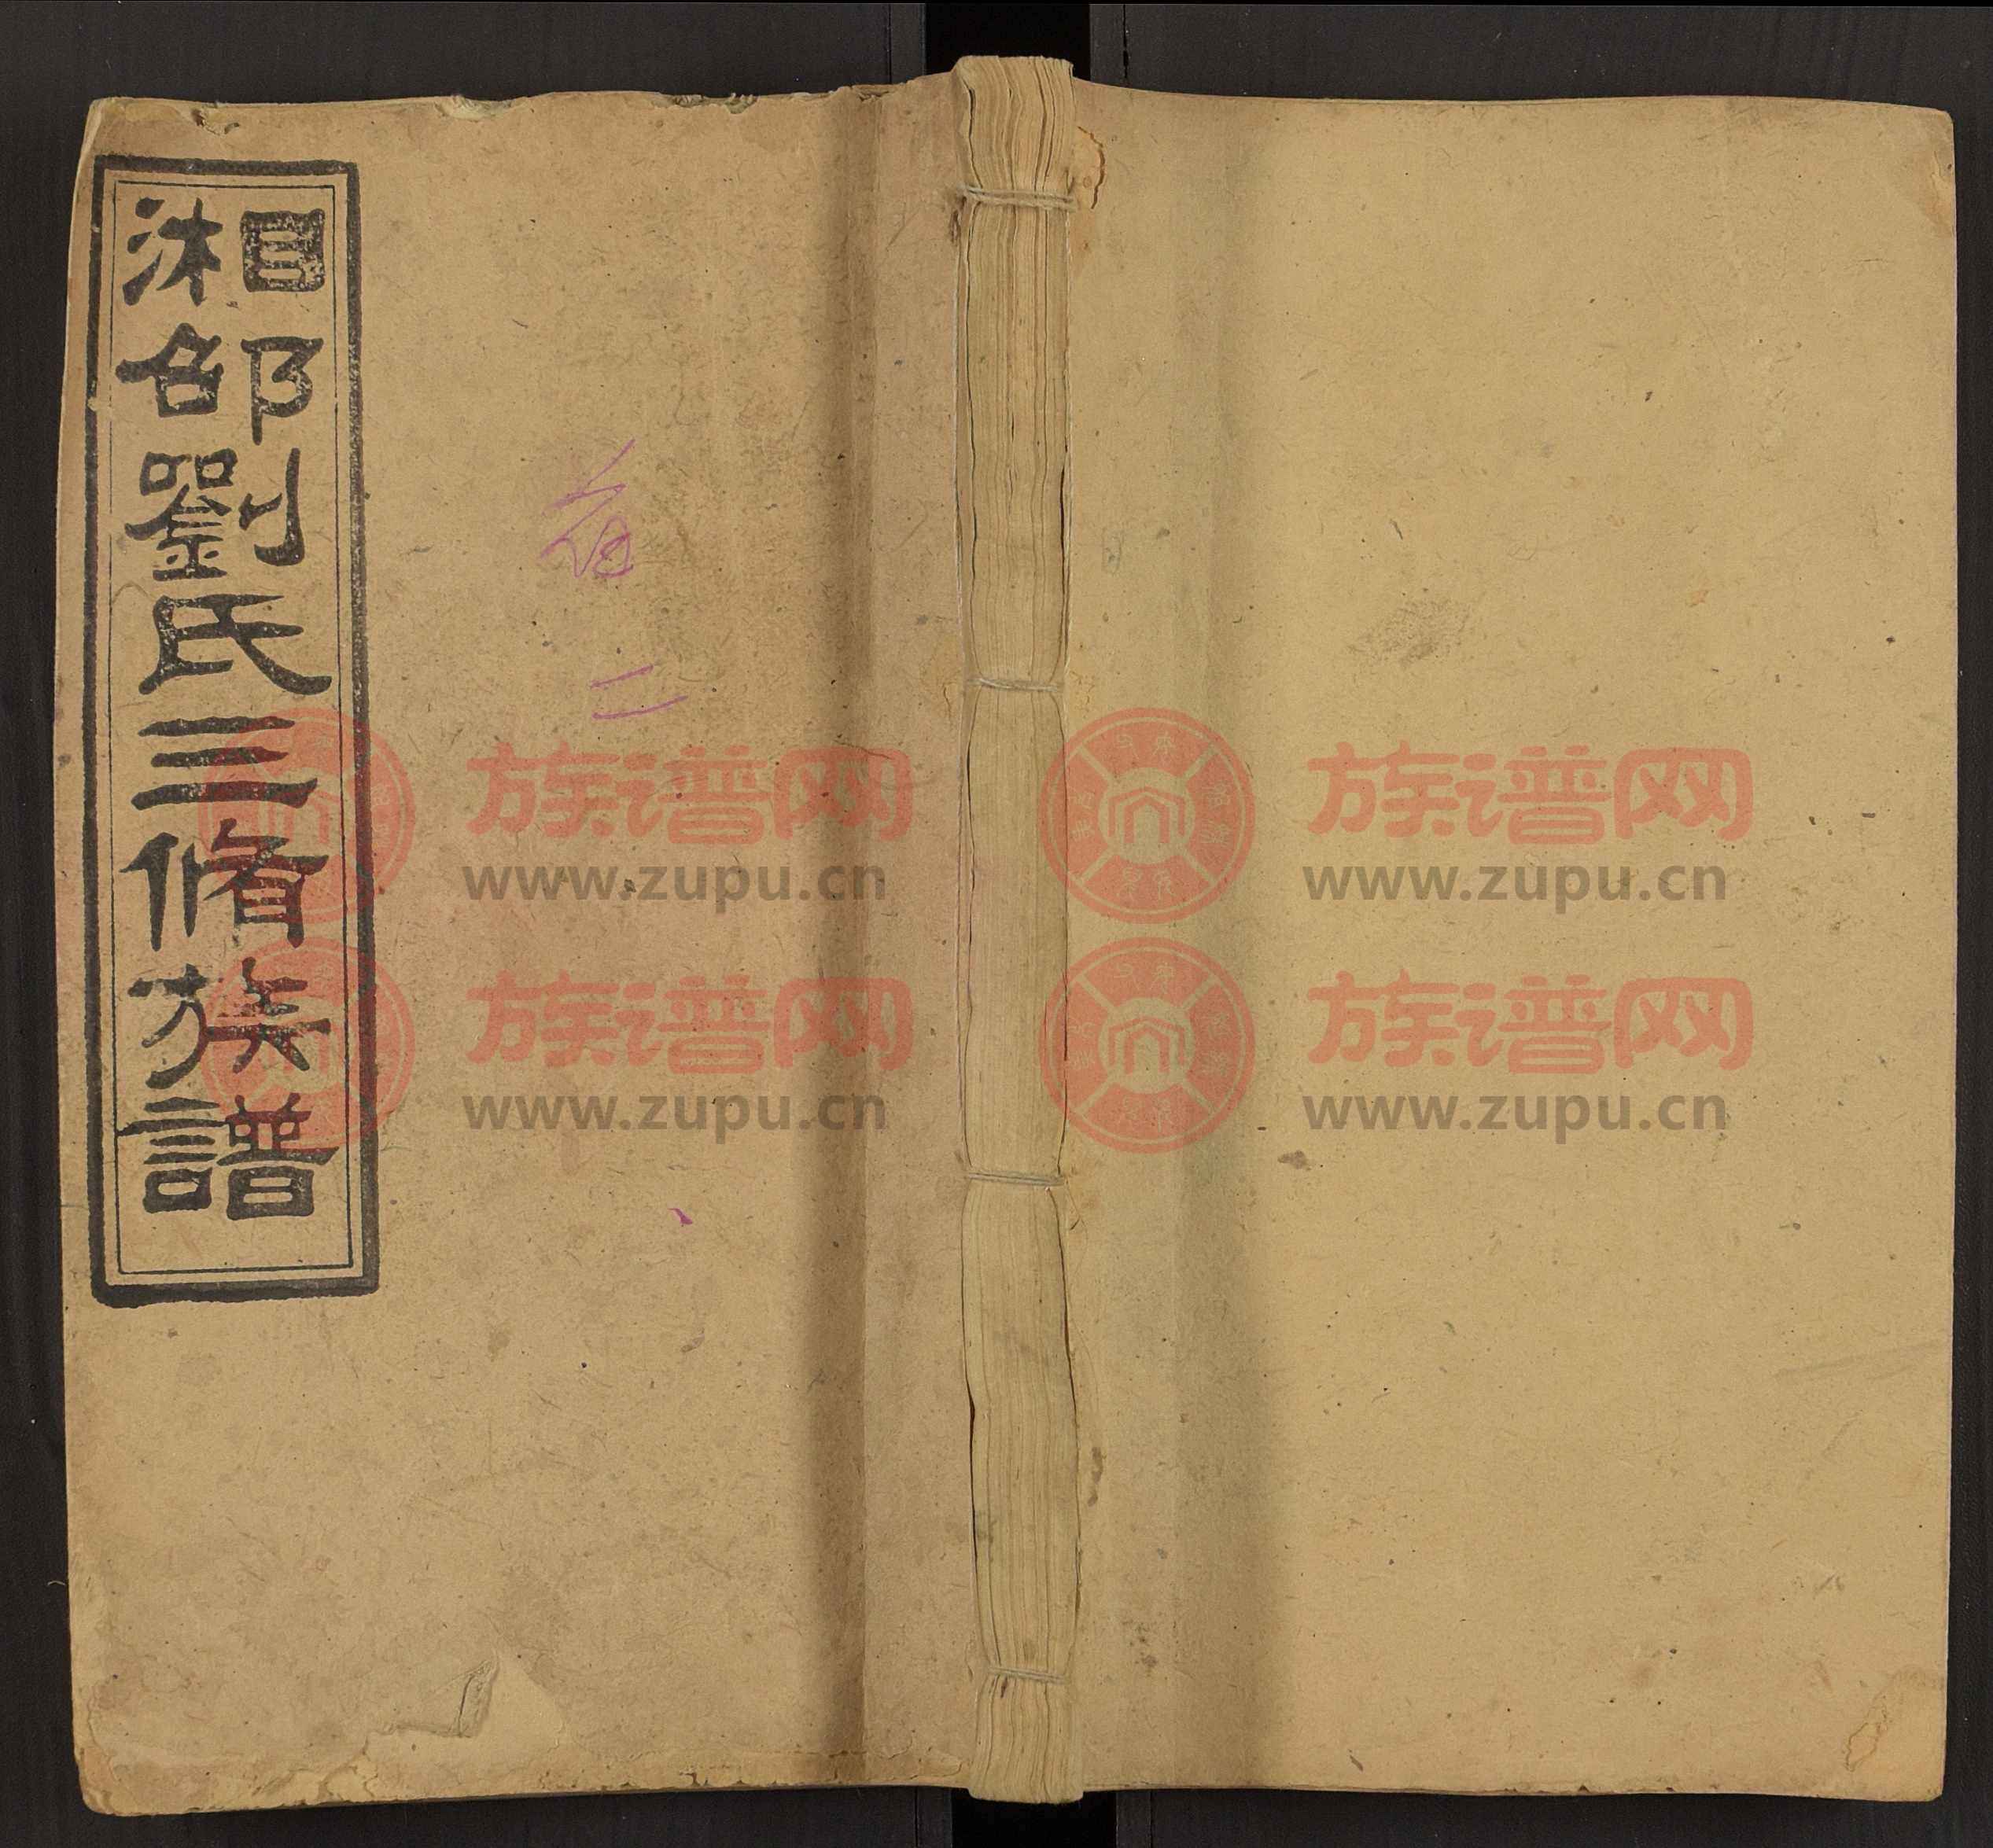 湘邵劉氏三脩族譜
二
族谱网
www.zupu.cn
族谱网
www.zupu.cn
族谱网
www.zupu.cn
族谱网
www.zupu.cn